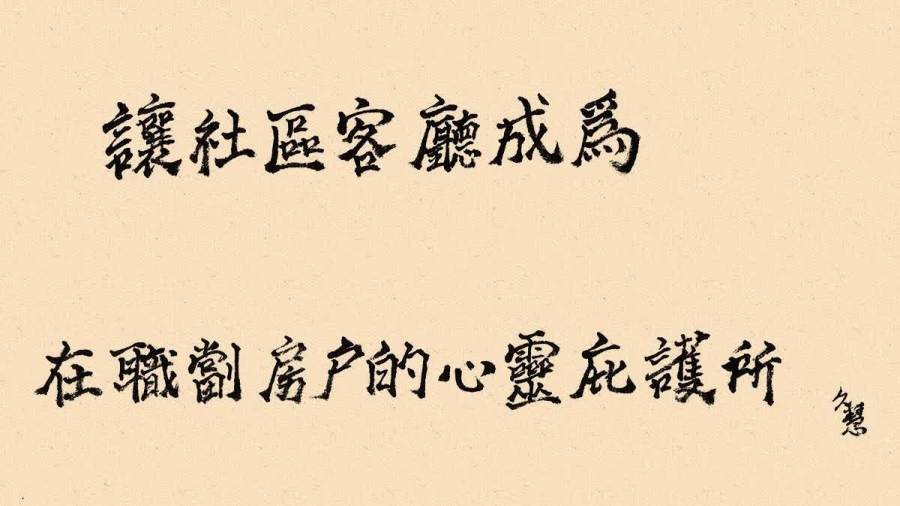 讓社區客廳成為
在職劏房户的心靈庇護所
久慧